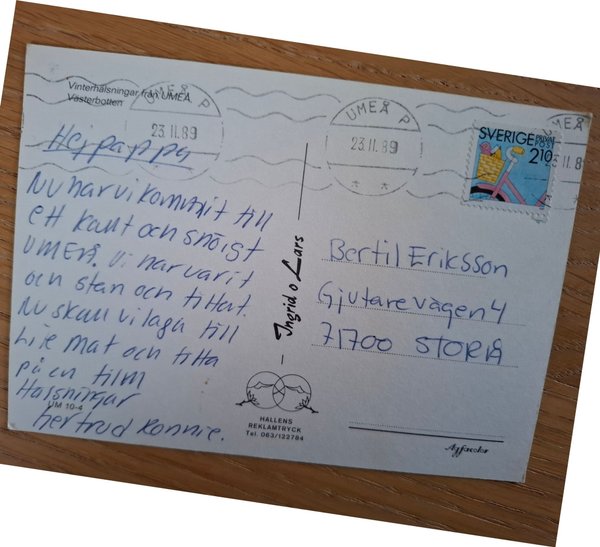 Vinterhälsningar från UMEÅ,
Västerbotten
UMEÅ P
23.11.89
UMEÅ P
23.11.89
UMEÅ
23.11.89
SVERIGE PRIVAT
POST
2.10
Hej pappa
Nu har vi kommit till
ett kallt och snöigt
UMEÅ. Vi har varit
och stan och tittat.
Nu skall vi laga till
Lite mat och titta
på en film
Hälsningar
Gertrud Konnie.
UM 10-4
Ingrid o Lars
HALLENS
REKLAMTRYCK
Tel. 063/122784
Bertil Eriksson
Gjutare vägen 4
71700 STORÅ
Agfacolor